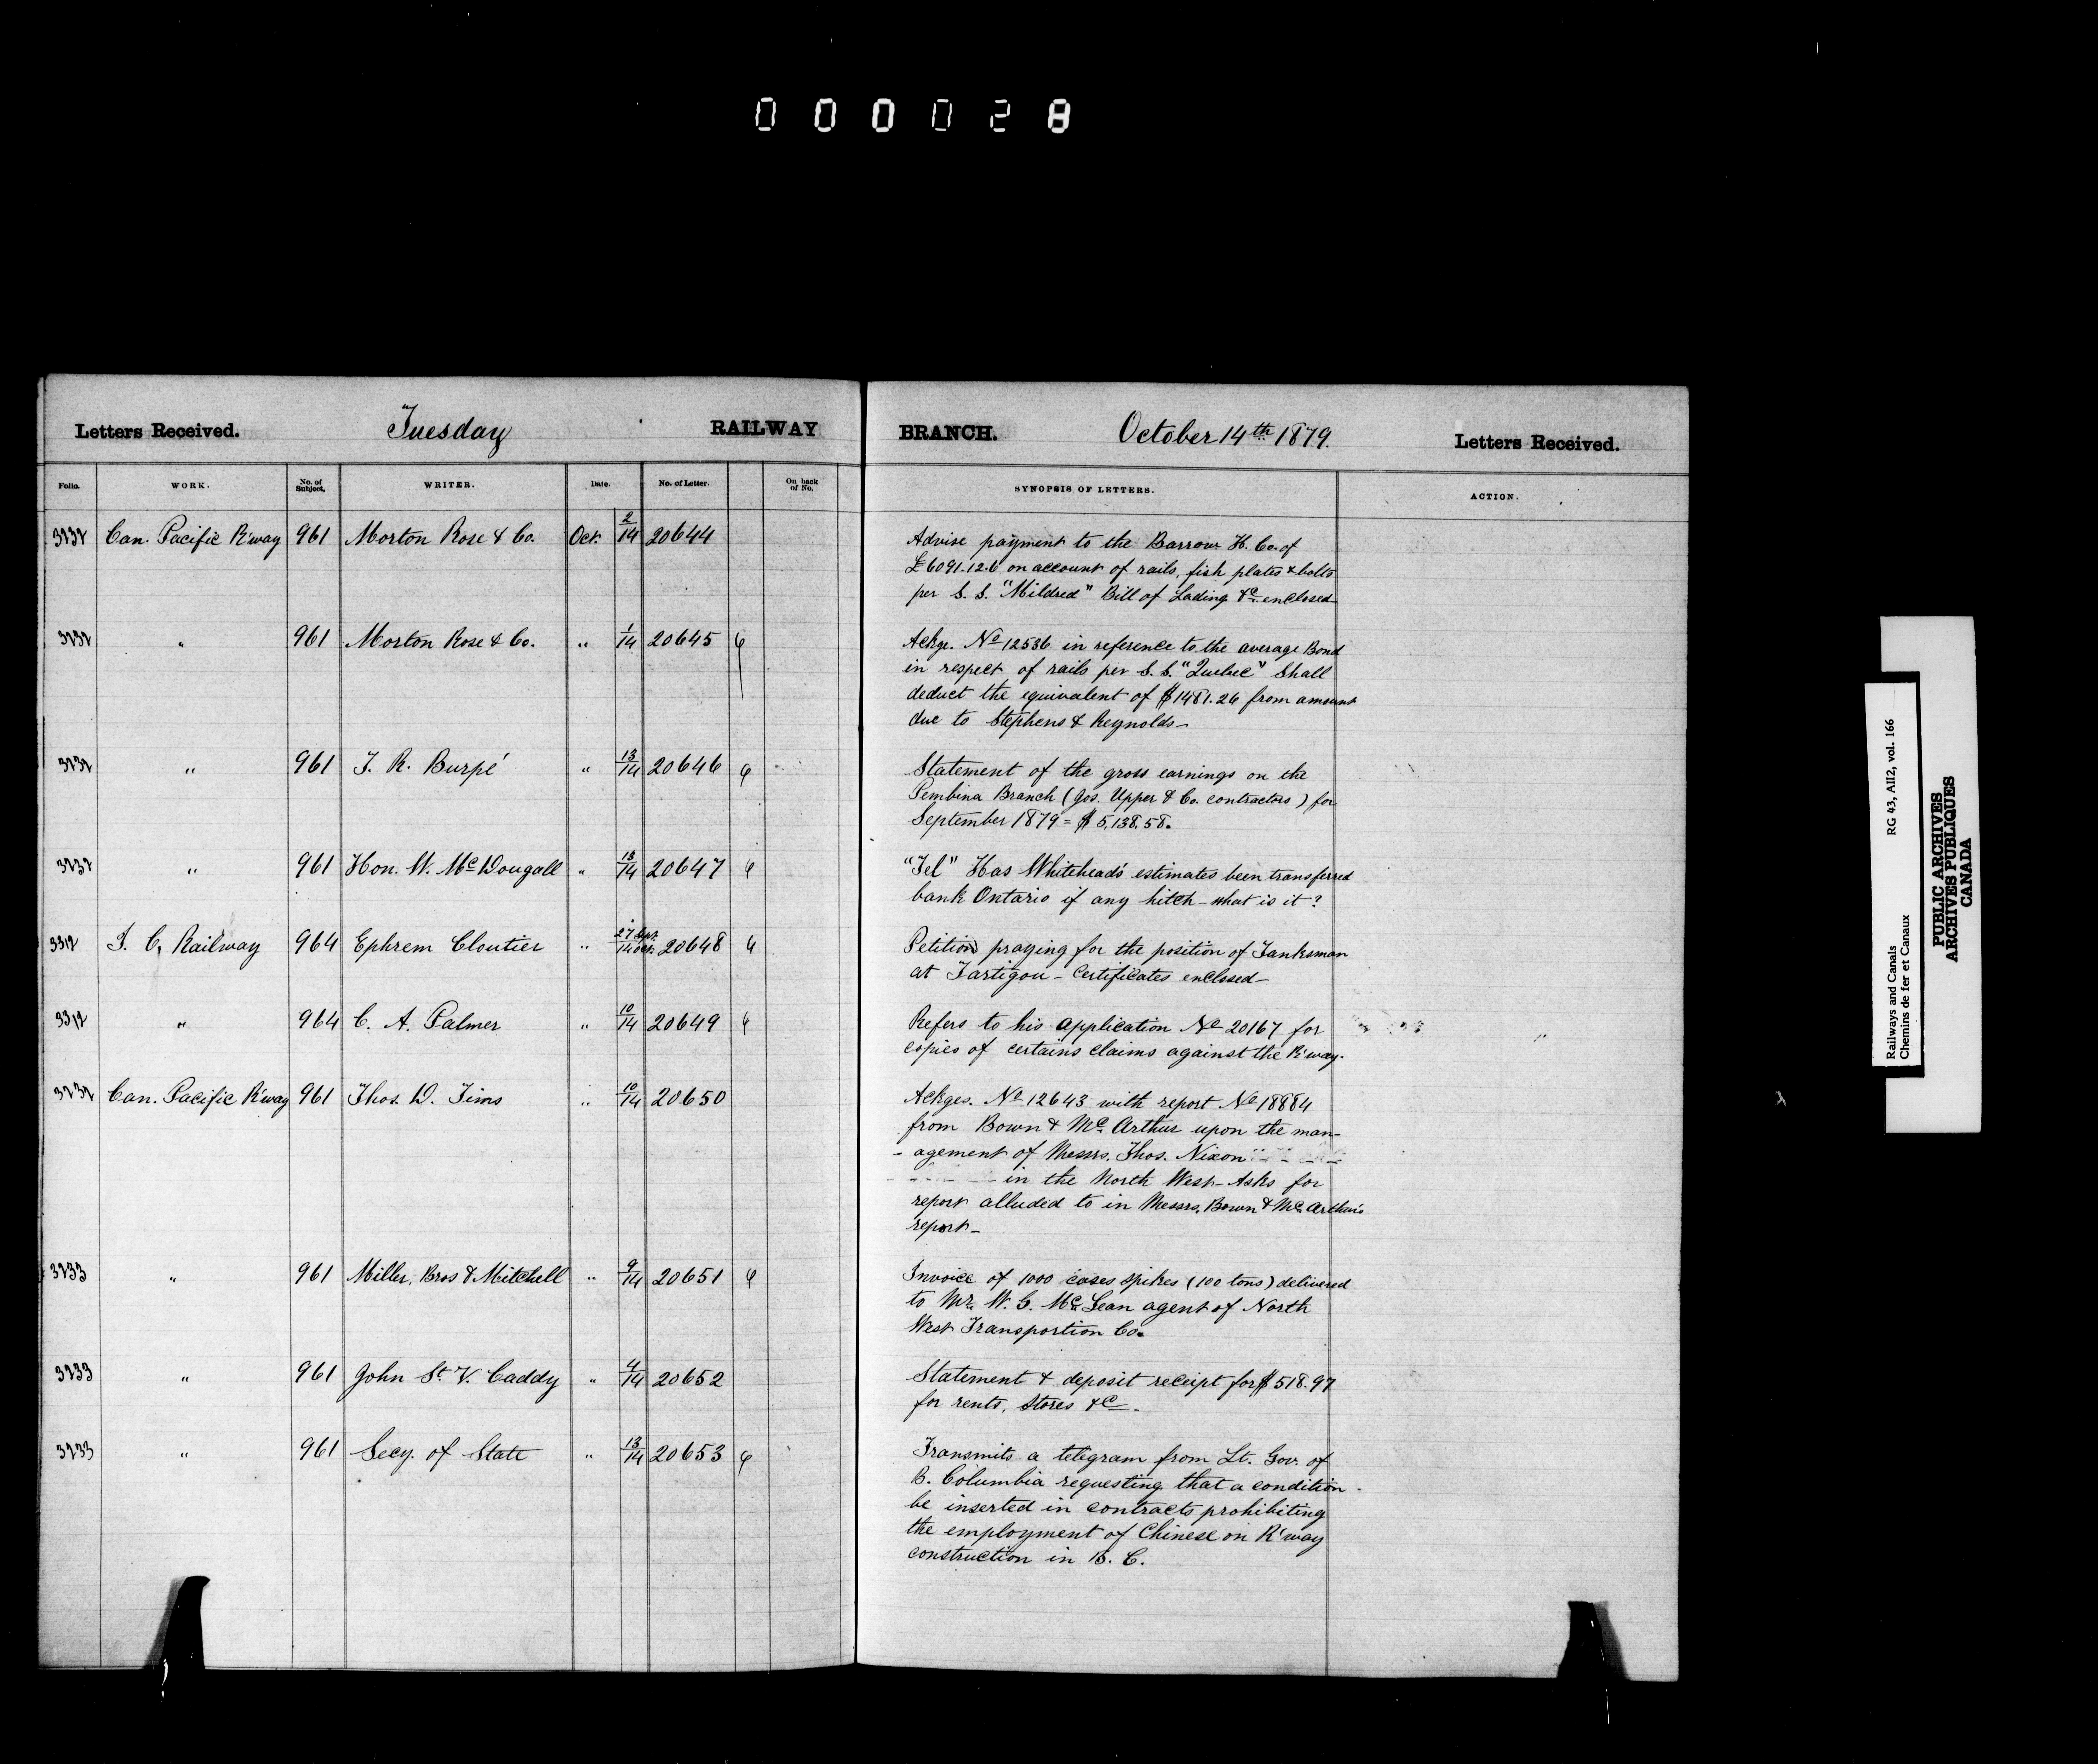 000028
Letters Received. Tuesday RAILWAY BRANCH. October 14th 1879. Letters Received.
Folio. WORK. No. of Subject. WRITER. Date. No. of Letter. On back of No. SYNOPSIS OF LETTERS. ACTION.
3232 Can. Pacific R'way 961 Morton Rose & Co. Oct. 2/14 20644
Advise payment to the Barrow H. Co. of
£6091.12.6 on account of rails, fish plates & bolts
per S. S. "Mildred" Bill of Lading &c enclosed
3232 " 961 Morton Rose & Co. " 1/14 20645
Ackge. No 12536 in reference to the average Bond
in respect of rails per S. S. "Quebec" Shall
deduct the equivalent of $1481.26 from amount
due to Stephens & Reynolds—
3232 " 961 T. R. Burpé " 13/14 20646
Statement of the gross earnings on the
Pembina Branch (Jos. Upper & Co. contractors) for
September 1879 = $5,138.58.
3232 " 961 Hon. W. McDougall " 13/14 20647
"Tel" Has Whitehead's estimates been transferred
bank Ontario if any hitch - what is it?
3312 I. C. Railway 964 Ephrem Cloutier " 27 Sept. / 14 Oct. 20648
Petition praying for the position of Tanksman
at Tartigou - Certificates enclosed—
3312 " 964 C. A. Palmer " 10/14 20649
Refers to his application No 20167 for
copies of certains claims against the R'way.
3232 Can. Pacific R'way 961 Thos. D. Tims " 10/14 20650
Ackges. No 12643 with report No 18884
from Bown & McArthur upon the man-
-agement of Messrs. Thos. Nixon
in the North West - Asks for
report alluded to in Messrs. Bown & McArthur's
report—
3233 " 961 Miller, Bros & Mitchell " 9/14 20651
Invoice of 1000 cases spikes (100 tons) delivered
to Mr. W. G. McLean agent of North
West Transportion Co.
3233 " 961 John St. V. Caddy " 4/14 20652
Statement & deposit receipt for $518.97
for rents, stores &c.
3233 " 961 Secy. of State " 13/14 20653
Transmits a telegram from Lt. Gov. of
B. Columbia requesting that a condition
be inserted in contracts prohibiting
the employment of Chinese on R'way
construction in B. C.
Railways and Canals RG 43, AII2, vol. 166
Chemins de fer et Canaux
PUBLIC ARCHIVES
ARCHIVES PUBLIQUES
CANADA